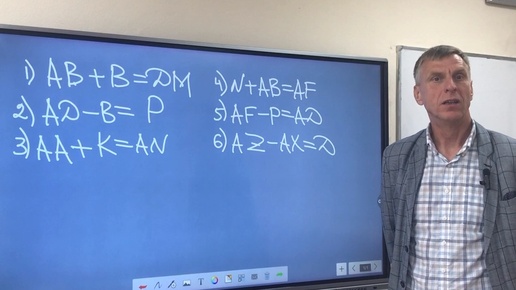 1) AB + B = DM
2) AD - B = P
3) AA + K = AN
4) N + AB = AF
5) AF - P = AD
6) AZ - AX = D